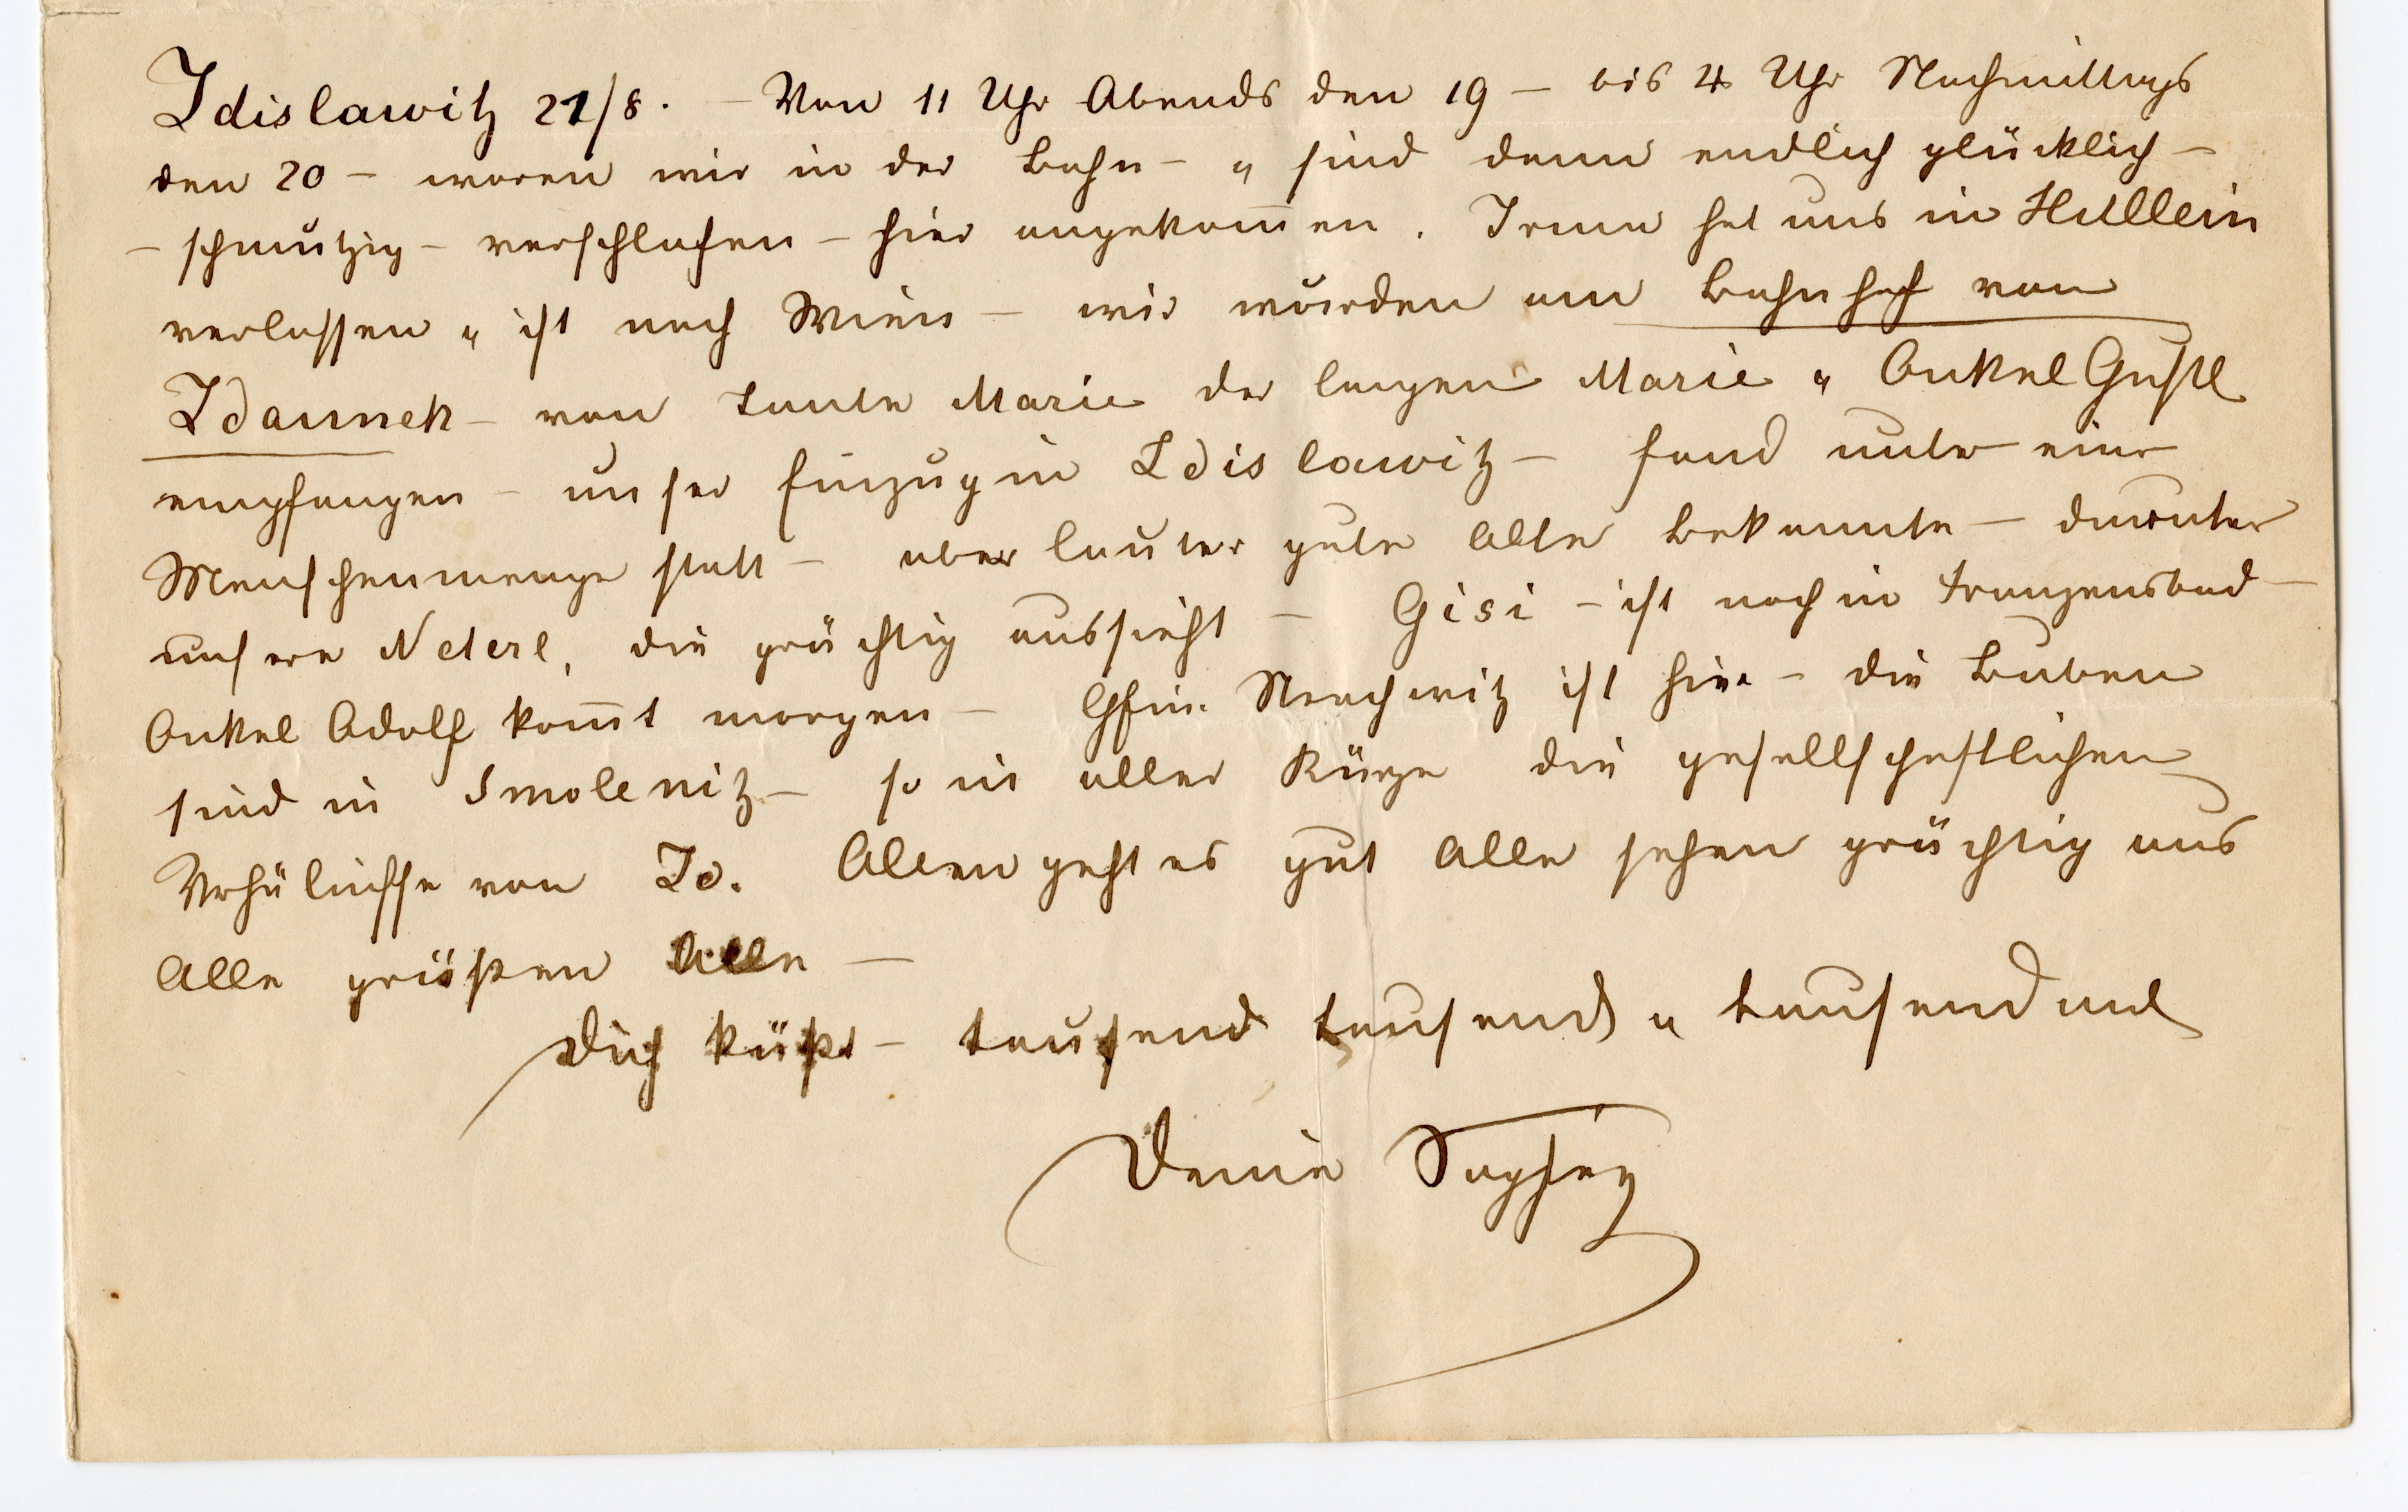 Zdislawitz 21/8. – Von 11 Uhr Abends den 19 – bis 4 Uhr Nachmittags
den 20 – waren wir in der Bahn – u sind denn endlich glücklich –
– schmutzig – verschlafen – hier angekom̅en. Irma hat uns in Hullein
verlassen u ist nach Wien – wir wurden am Bahnhof von
Zdaunek – von Tante Marie der langen Marie u Onkel Gustl
empfangen – unser Einzug in Zdislawitz – fand unter einer
Menschenmenge statt – aber lauter gute alte Bekannte – darunter
unsere Neterl, die prächtig aussieht – Gisi – ist noch in Franzensbad –
Onkel Adolf kom̅t morgen – Gfin. ist hier – die Buben
sind in Smolenitz – so in aller Kürze die gesellschaftlichen
Verhältnisse von Zd. Allen geht es gut Alle sehen prächtig aus
Alle grüßen Alle –
Dich küßt – tausend tausend u tausendmal
Deine Sophie